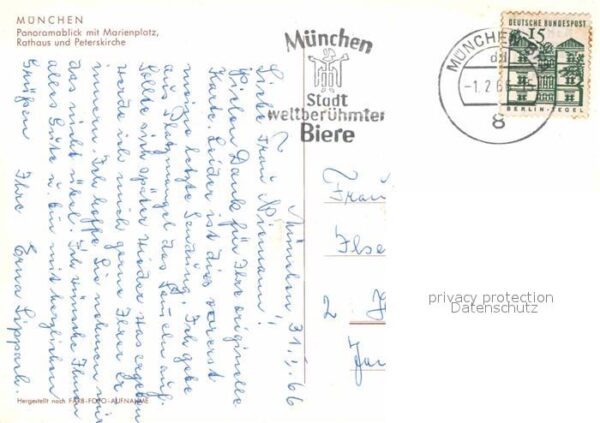 MÜNCHEN
Panoramablick mit Marienplatz,
Rathaus und Peterskirche
München, 31.1.66
Liebe Frau Niemann!
Vielen Dank für Ihre originelle
Karte. Leider ist dies vorerst
meine letzte Sendung. Ich gebe
aus Platzmangel das Sammeln auf.
Sollte sich später wieder was ergeben
werde ich mich gerne Ihrer er-
innern. Ich hoffe Sie nehmen mir
das nicht übel. Ich wünsche Ihnen
alles Gute u. bin mit herzlichen
Grüßen Ihre Erna Lippack.
Hergestellt nach FARB-FOTO-AUFNAHME
München
Stadt
weltberühmter
Biere
MÜNCHEN
-1.2.6
8
DEUTSCHE BUNDESPOST
15
BERLIN-TEGEL
Frau
Ilse
2
privacy protection
Datenschutz